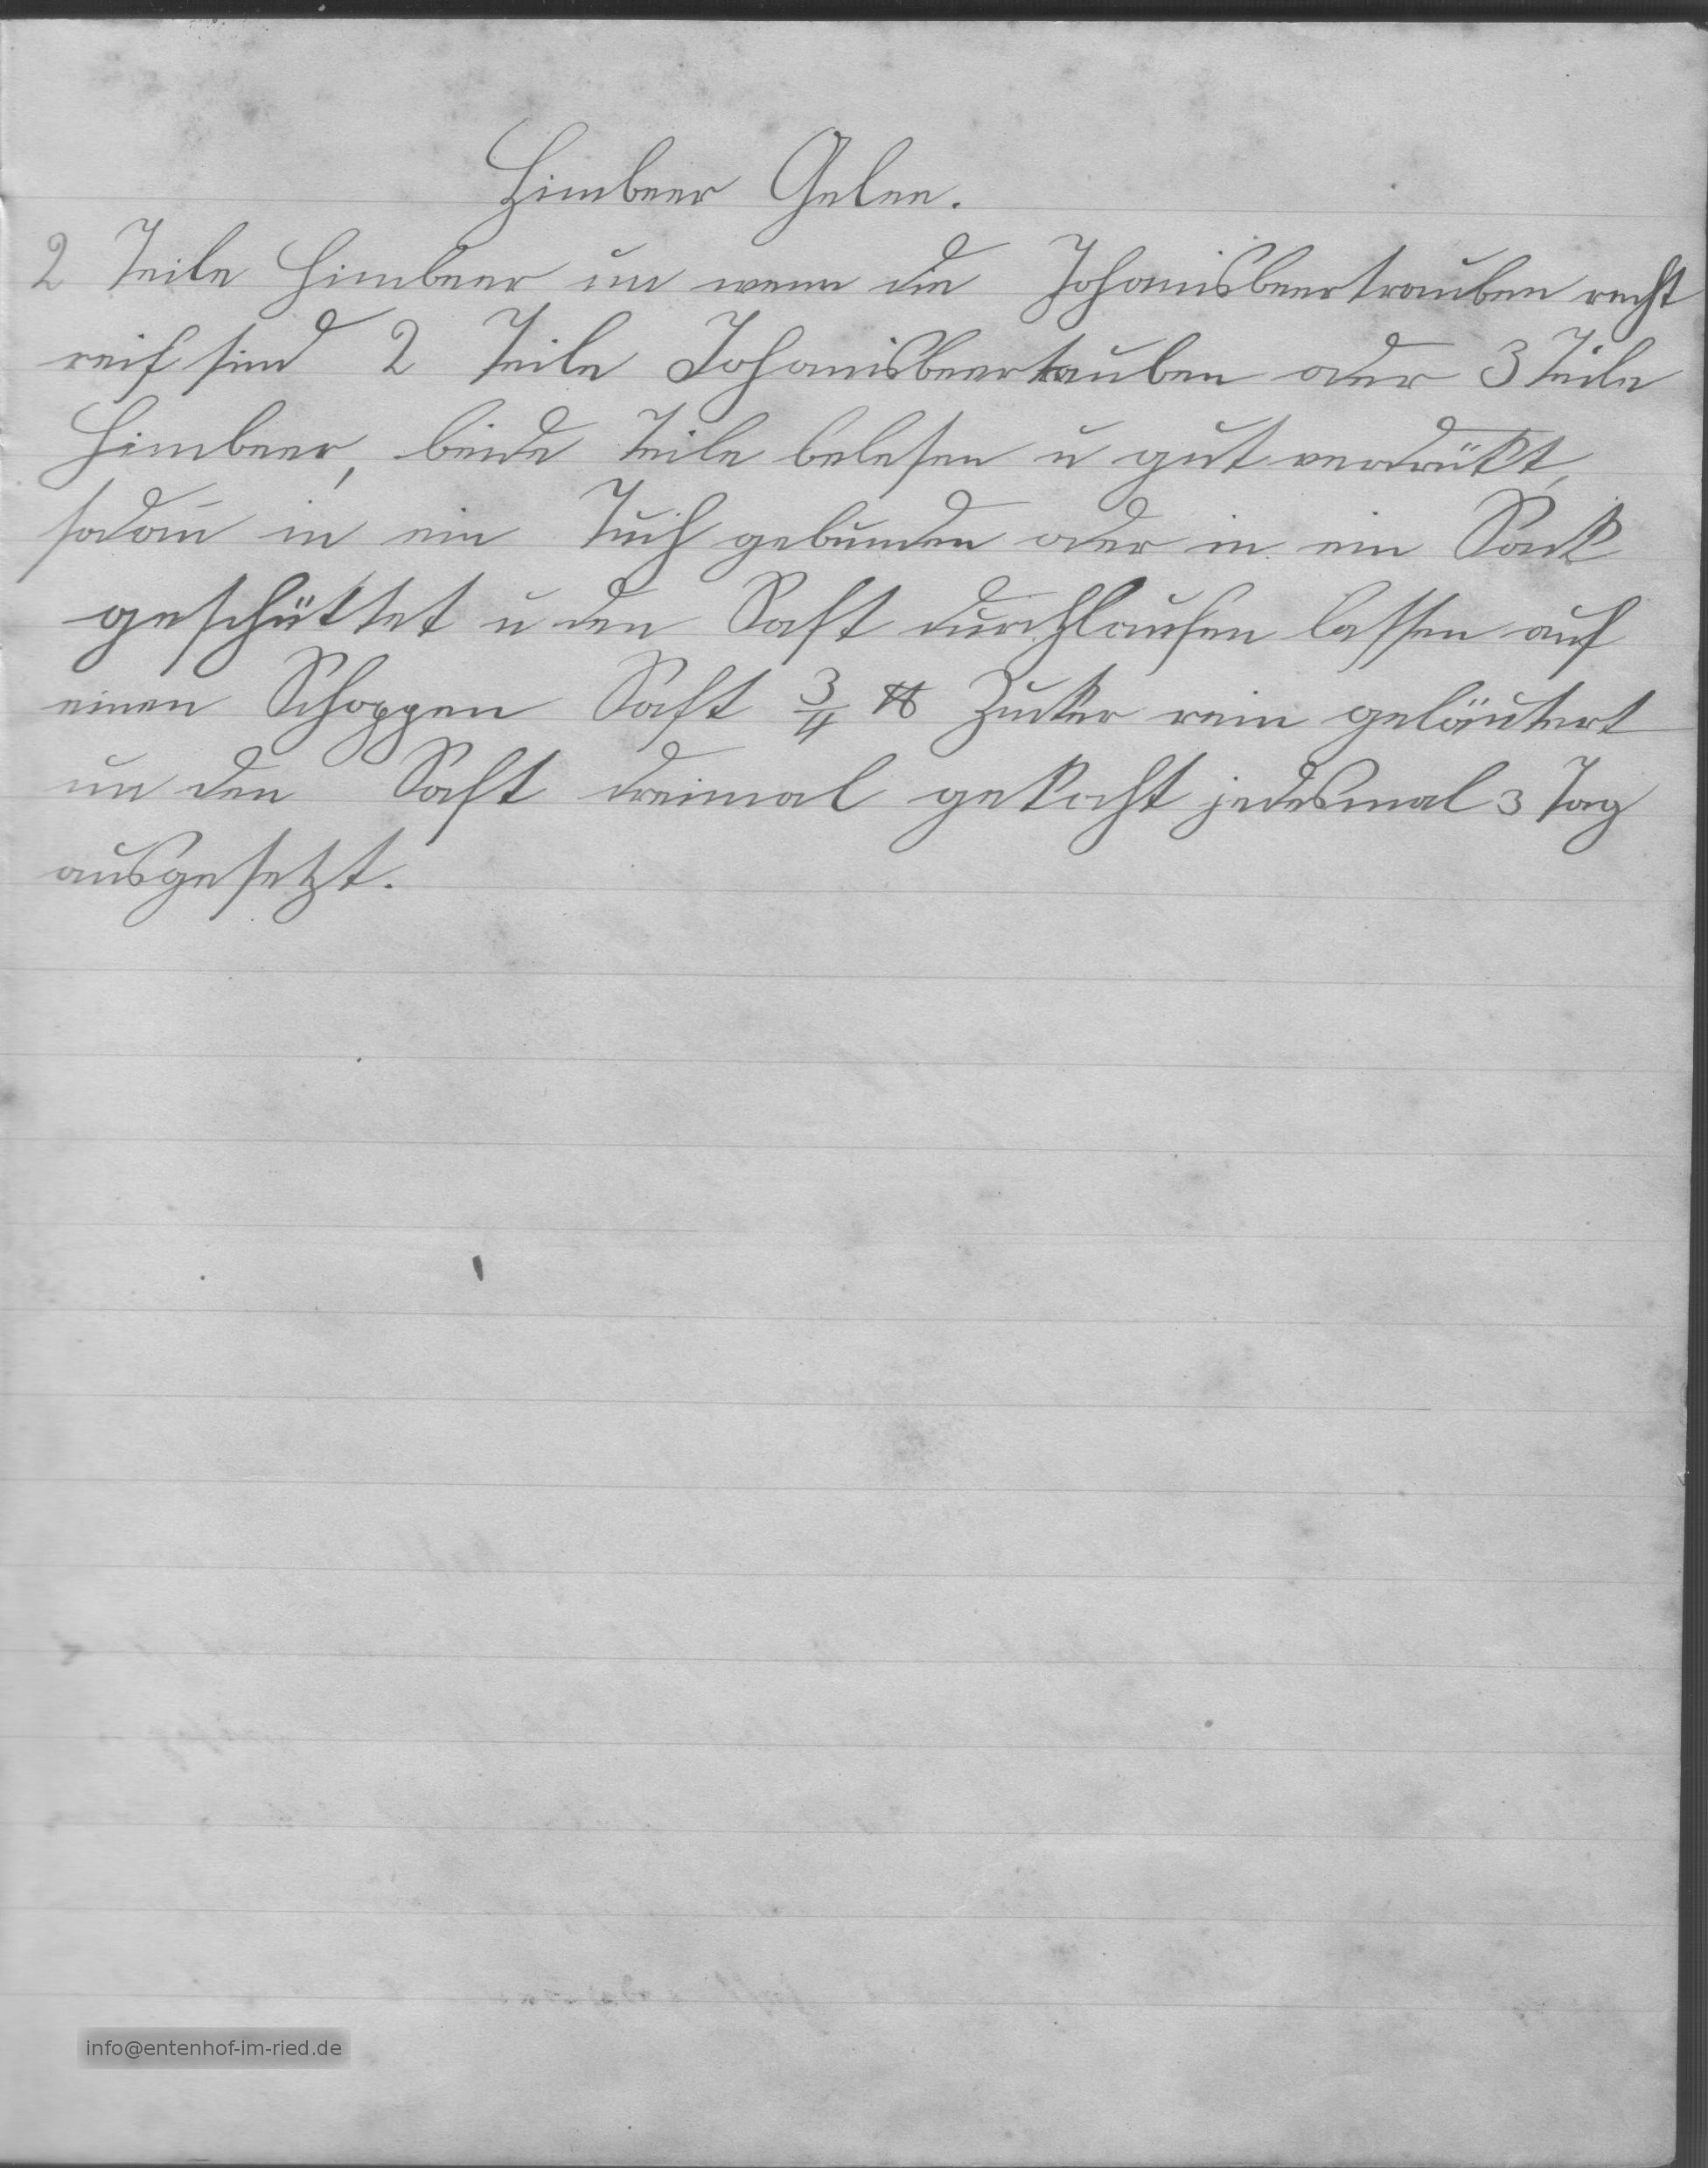 Himbeer Gelee.
2 Teile Himbeer un wenn die Johanisbeertrauben recht
reif sind 2 Teile Johanisbeertauben oder 3 Teile
Himbeer, beide Teile belesen u gut verdrükt,
sodan̄ in ein Tuch gebunden oder in ein Sack
geschüttet u den Saft durchlaufen lassen auf
einen Schoppen Saft 3/4 ℔ Zucker rein geläutert
un den Saft dreimal gekocht jedesmal 3 Tag
ausgesetzt.
info@entenhof-im-ried.de